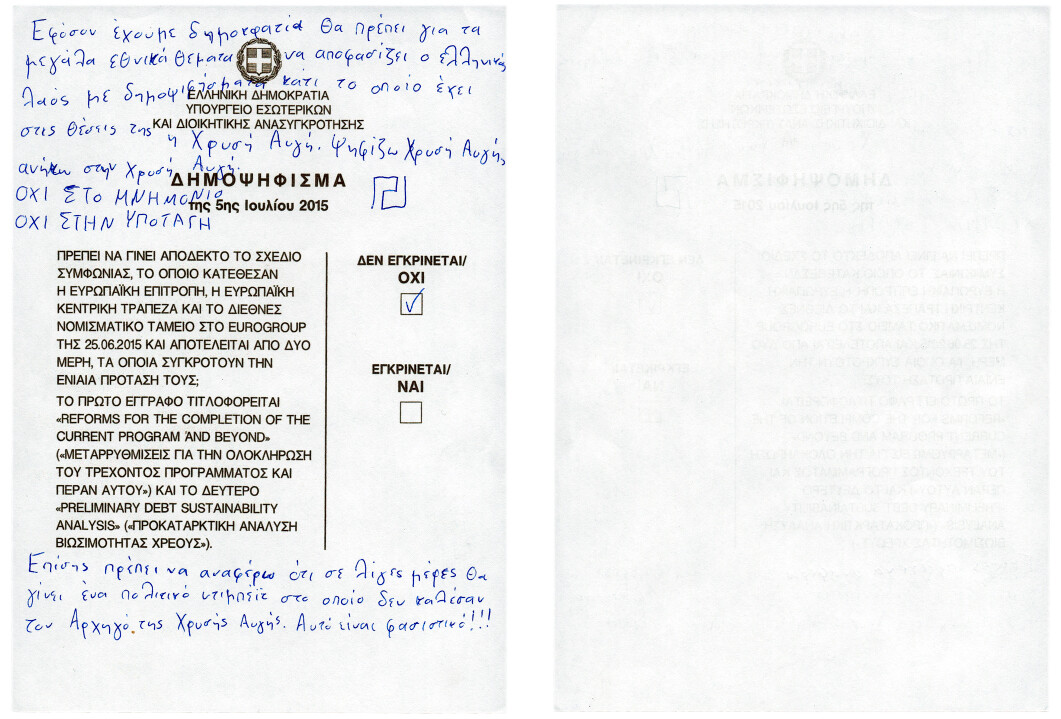 Εφόσον έχουμε δημοκρατία θα πρέπει για τα
μεγάλα εθνικά θέματα να αποφασίζει ο ελληνικός
λαός με δημοψηφίσματα κάτι το οποίο έχει
ΕΛΛΗΝΙΚΗ ΔΗΜΟΚΡΑΤΙΑ
ΥΠΟΥΡΓΕΙΟ ΕΣΩΤΕΡΙΚΩΝ
ΚΑΙ ΔΙΟΙΚΗΤΙΚΗΣ ΑΝΑΣΥΓΚΡΟΤΗΣΗΣ
στις θέσεις της η Χρυσή Αυγή. Ψηφίζω Χρυσή Αυγή,
ανήκω στην Χρυσή Αυγή.
ΔΗΜΟΨΗΦΙΣΜΑ
ΟΧΙ ΣΤΟ ΜΝΗΜΟΝΙΟ
της 5ης Ιουλίου 2015
ΟΧΙ ΣΤΗΝ ΥΠΟΤΑΓΗ
ΠΡΕΠΕΙ ΝΑ ΓΙΝΕΙ ΑΠΟΔΕΚΤΟ ΤΟ ΣΧΕΔΙΟ
ΣΥΜΦΩΝΙΑΣ, ΤΟ ΟΠΟΙΟ ΚΑΤΕΘΕΣΑΝ
Η ΕΥΡΩΠΑΪΚΗ ΕΠΙΤΡΟΠΗ, Η ΕΥΡΩΠΑΪΚΗ
ΚΕΝΤΡΙΚΗ ΤΡΑΠΕΖΑ ΚΑΙ ΤΟ ΔΙΕΘΝΕΣ
ΝΟΜΙΣΜΑΤΙΚΟ ΤΑΜΕΙΟ ΣΤΟ EUROGROUP
ΤΗΣ 25.06.2015 ΚΑΙ ΑΠΟΤΕΛΕΙΤΑΙ ΑΠΟ ΔΥΟ
ΜΕΡΗ, ΤΑ ΟΠΟΙΑ ΣΥΓΚΡΟΤΟΥΝ ΤΗΝ
ΕΝΙΑΙΑ ΠΡΟΤΑΣΗ ΤΟΥΣ;
ΤΟ ΠΡΩΤΟ ΕΓΓΡΑΦΟ ΤΙΤΛΟΦΟΡΕΙΤΑΙ
«REFORMS FOR THE COMPLETION OF THE
CURRENT PROGRAM AND BEYOND»
(«ΜΕΤΑΡΡΥΘΜΙΣΕΙΣ ΓΙΑ ΤΗΝ ΟΛΟΚΛΗΡΩΣΗ
ΤΟΥ ΤΡΕΧΟΝΤΟΣ ΠΡΟΓΡΑΜΜΑΤΟΣ ΚΑΙ
ΠΕΡΑΝ ΑΥΤΟΥ») ΚΑΙ ΤΟ ΔΕΥΤΕΡΟ
«PRELIMINARY DEBT SUSTAINABILITY
ANALYSIS» («ΠΡΟΚΑΤΑΡΚΤΙΚΗ ΑΝΑΛΥΣΗ
ΒΙΩΣΙΜΟΤΗΤΑΣ ΧΡΕΟΥΣ»).
ΔΕΝ ΕΓΚΡΙΝΕΤΑΙ/
ΟΧΙ
ΕΓΚΡΙΝΕΤΑΙ/
ΝΑΙ
Επίσης πρέπει να αναφέρω ότι σε λίγες μέρες θα
γίνει ένα πολιτικό ντιμπέιτ στο οποίο δεν καλέσαν
τον Αρχηγό της Χρυσής Αυγής. Αυτό είναι φασιστικό!!!